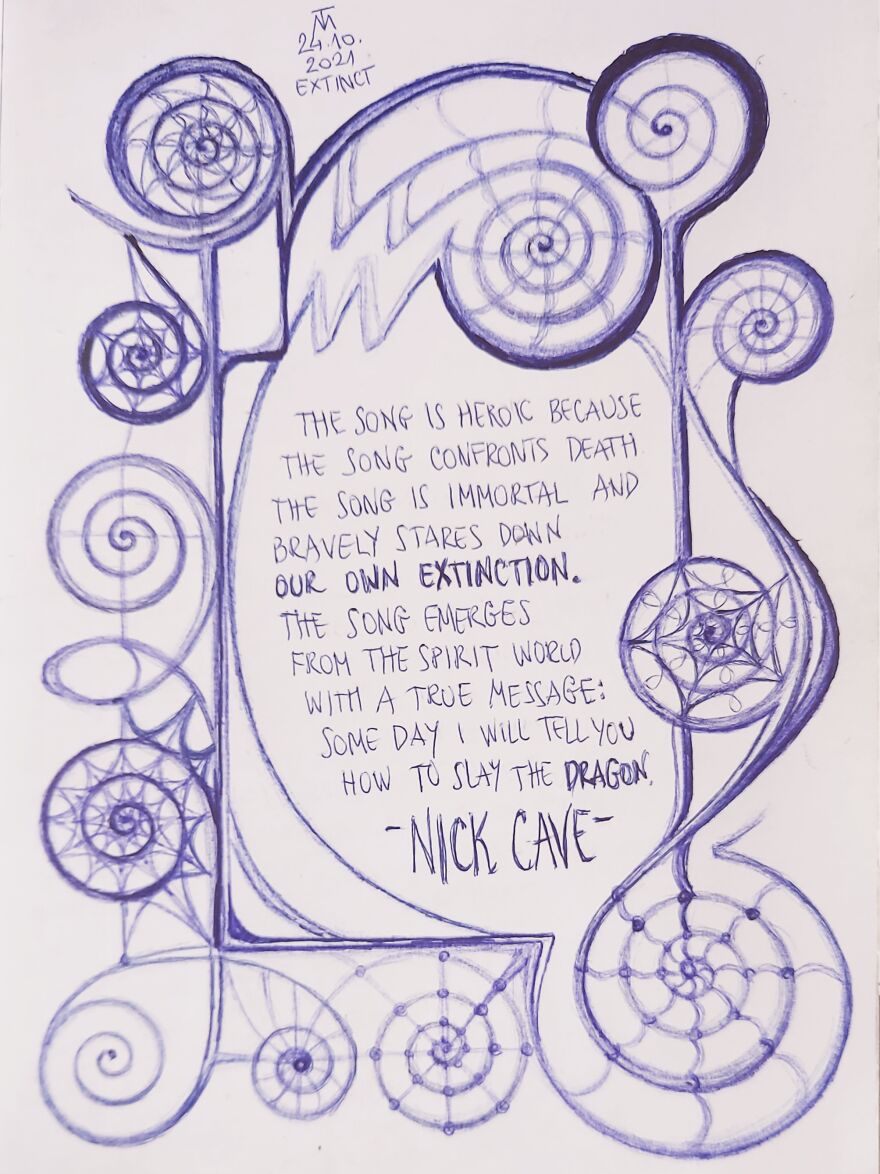 TM
24.10.
2021
EXTINCT
THE SONG IS HEROIC BECAUSE
THE SONG CONFRONTS DEATH
THE SONG IS IMMORTAL AND
BRAVELY STARES DOWN
OUR OWN EXTINCTION.
THE SONG EMERGES
FROM THE SPIRIT WORLD
WITH A TRUE MESSAGE:
SOME DAY I WILL TELL YOU
HOW TO SLAY THE DRAGON.
-NICK CAVE-